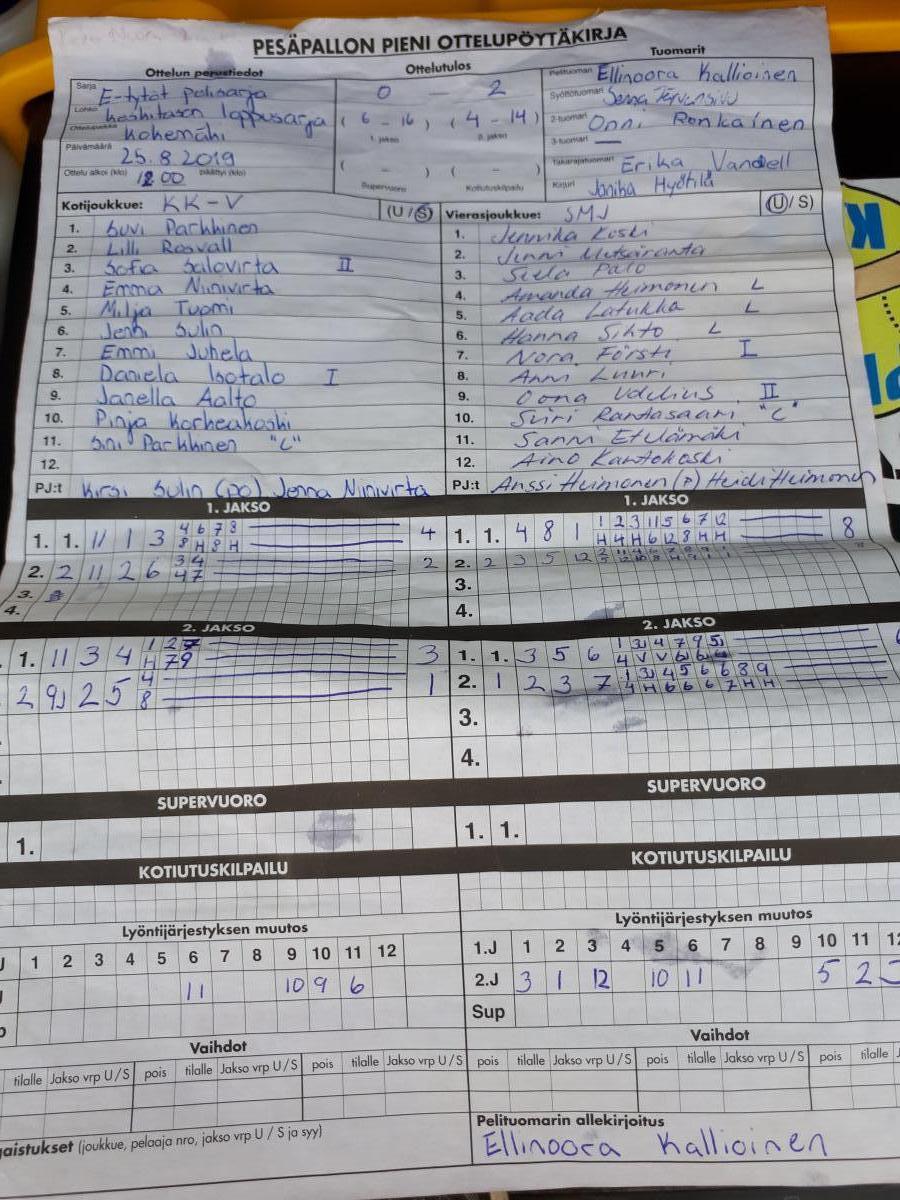 PESÄPALLON PIENI OTTELUPÖYTÄKIRJA
Ottelun perustiedot
Ottelutulos
Tuomarit
Sarja E-tytöt
Lohko loppusarja
Kokemäki
Päivämäärä 25.8 2019
Ottelu alkoi (klo) 12 00 päättyi (klo)
0 - 2
( 6 - 16 ) ( 4 - 14 )
1. jakso 2. jakso
( - ) ( - )
Supervuoro Kotiutuskilpailu
Pelituomari Ellinoora Kallioinen
Syöttötuomari Jenna
2-tuomari Onni Ronkainen
3-tuomari —
Takarajatuomari Erika Vandell
Kirjuri Janika Hyötilä
Kotijoukkue: KK-V (U/S)
1. Suvi Parkkinen
2. Lilli Rosvall
3. Sofia Salovirta II
4. Emma Niinivirta
5. Milja Tuomi
6. Jenni Sulin
7. Emmi Juhela
8. Daniela Isotalo I
9. Janella Aalto
10. Pinja Korkeakoski
11. Sini Parkkinen "C"
12.
PJ:t Kirsi Sulin (PJ) Jonna Niinivirta
Vierasjoukkue: SMJ (U/S)
1. Jennika Koski
2. Jenni Metsäranta
3. Siela Palo
4. Amanda Heimonen L
5. Aada Latukka L
6. Hanna Sihto L
7. Nora Försti I
8. Anni Luuri
9. Oona II
10. Siiri Rantasaari "C"
11. Sanni Etelämäki
12. Aino Kantokoski
PJ:t Anssi Heimonen (P) Heidi Heimonen
1. JAKSO
1. 1. 11 1 3 4 6 7 8 4
8 H 8 H
2. 2 11 2 6 3 4 2
4 7
3.
4.
1. JAKSO
1. 1. 4 8 1 1 2 3 11 5 6 7 12 8
H 4 H 6 12 8 H H
2. 2 3 5 12 8
3.
4.
2. JAKSO
1. 11 3 4 1 2 7 3
H 7 9
2 9J 2 5 4 1
8
2. JAKSO
1. 1. 3 5 6 1 3J 4 7 9 5J
4 V V 6
2. 1 2 3 7 1 3J 4 5 6 6 8 9
4 H 6 6 6 7 H H
3.
4.
SUPERVUORO
1.
SUPERVUORO
1. 1.
KOTIUTUSKILPAILU
KOTIUTUSKILPAILU
Lyöntijärjestyksen muutos
J 1 2 3 4 5 6 7 8 9 10 11 12
11 10 9 6
Lyöntijärjestyksen muutos
1.J 1 2 3 4 5 6 7 8 9 10 11 12
2.J 3 1 12 10 11 5 2
Sup
Vaihdot
tilalle Jakso vrp U/S pois tilalle Jakso vrp U/S pois tilalle Jakso vrp U/S
Vaihdot
pois tilalle Jakso vrp U/S pois tilalle Jakso vrp U/S pois tilalle
gaistukset (joukkue, pelaaja nro, jakso vrp U / S ja syy)
Pelituomarin allekirjoitus
Ellinoora Kallioinen